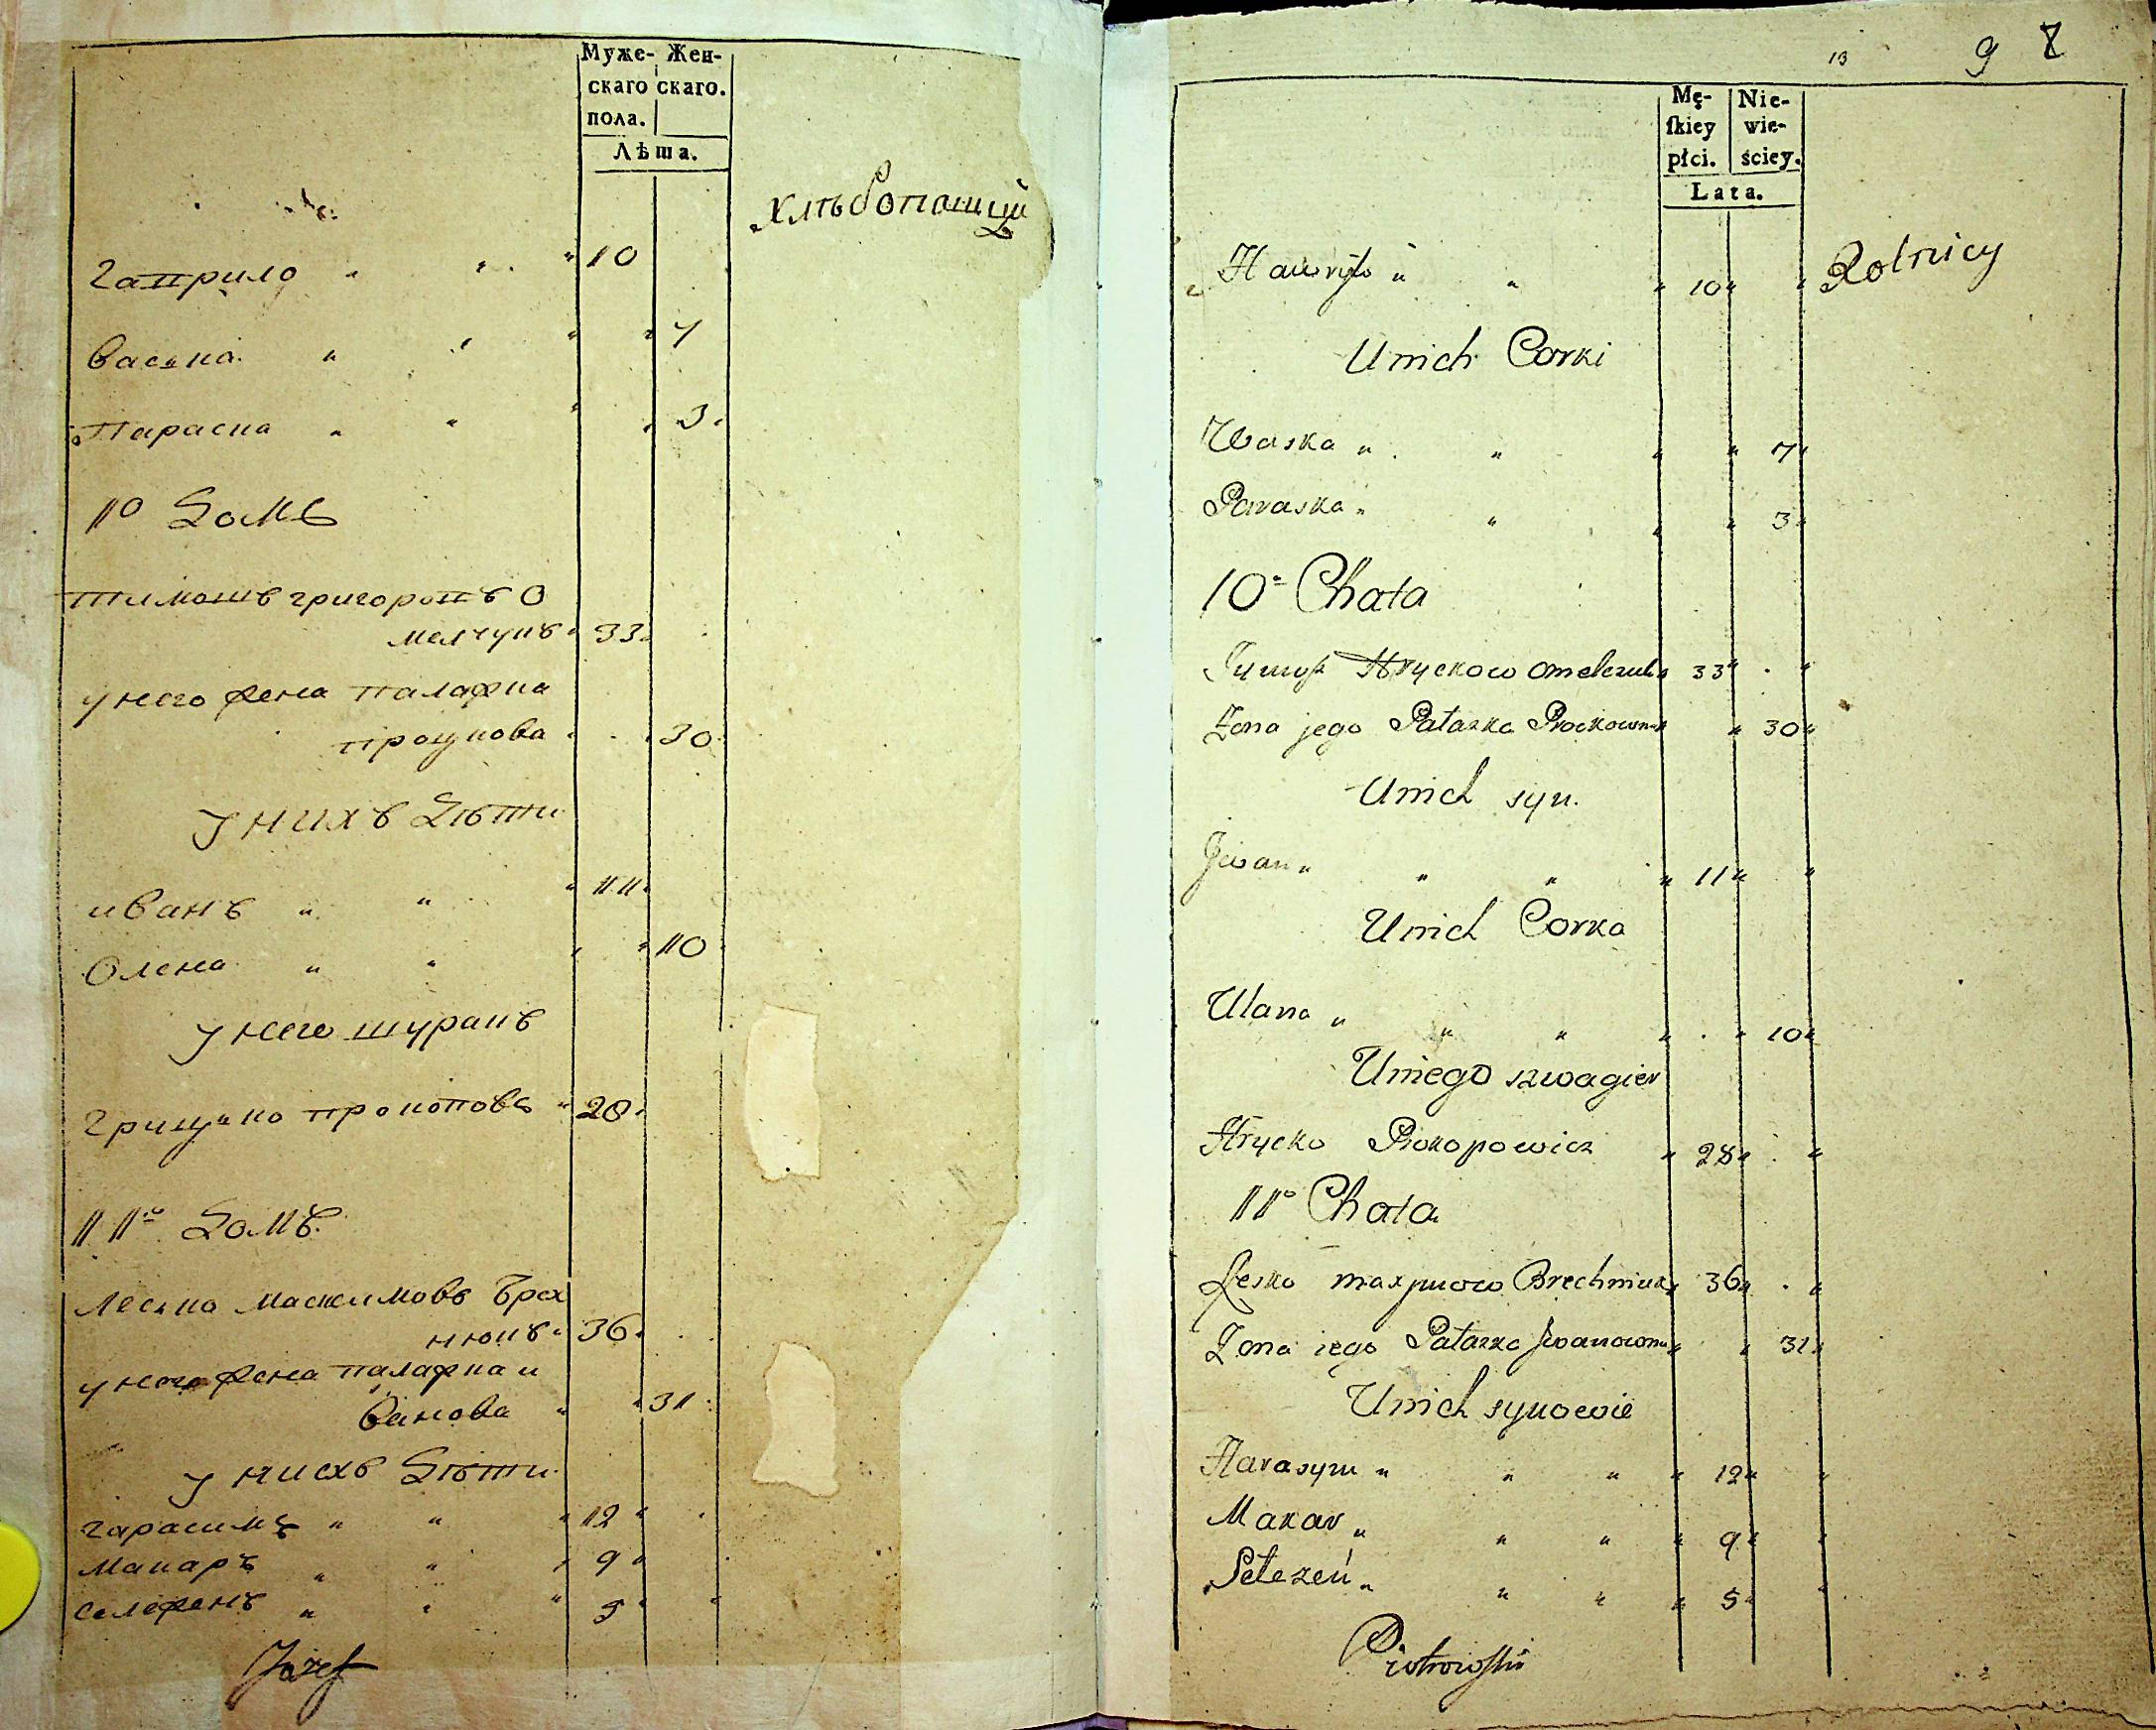 Муже- Жен-
скаго скаго.
пола.
Лѣта.
хлѣбопашцы
Гаврило " " " 10
Васька " " " " 7
Параска " " " " 3
10й Домъ
Тимошъ григоровъ О
мелчукъ 33
у него жена палажка
процкова 30
у нихъ дѣти
иванъ " " " 11
Олена " " " 10
у него шуринъ
грицько прокоповъ " 28
11й Домъ
леско максимовъ Брех
нюкъ 36
у него жена палажка и
ванова " " 31
у нихъ дѣти
гарасимъ " " " 12 "
макаръ " " " 9 "
сележенъ " " " 5 "
Józef
13 9 8
Mę- Nie-
ſkiey wie-
płci. ściey.
Lata.
Hawryło " " " 10 " " Rolnicy
Unich Corki
Waska " " " " 7 "
Paraska " " " " 3 "
10a Chata
Tymosz Hryckow Omelczuk 33 " "
Żona jego Pałazka Prockowna " 30 "
Unich syn.
Jwan " " " " 11 " "
Unich Corka
Ulana " " " " " 10 "
Uniego szwagier
Hrycko Prokopowicz " 28 " "
11a Chata
Lesko maxymow Brechniuk 36 " "
Żona iego Pałazka Jwanowna " 31 "
Unich synowie
Harasym " " " " 12 " "
Makar " " " " 9 " "
Seleżeń " " " " 5 " "
Piotrowski